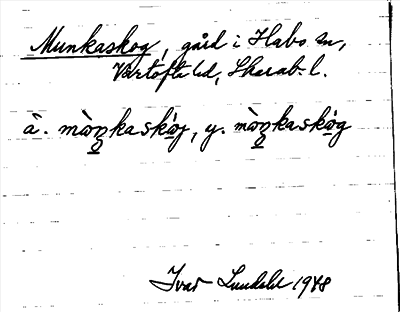 Munkaskog, gård i Habo sn,
Vartofta hd, Skarab. l.
ä. mòŋkaskòg, y. mòŋkaskòg
Ivar Lundahl 1948